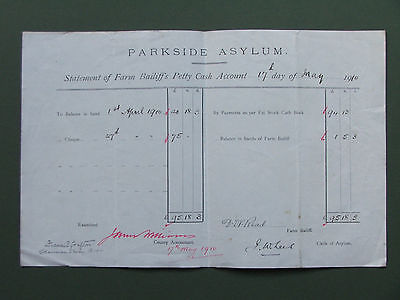 PARKSIDE ASYLUM.
Statement of Farm Bailiff's Petty Cash Account 17th day of May 1910
£ s. d. £ s. d.
To Balance in hand 1st April 1910 20 18 3 By Payments as per Fat Stock Cash Book 94 13 -
" Cheque 27th 75 - - Balance in hands of Farm Bailiff £ 1 5 3
£ 95 18 3 £ 95 18 3
Examined
Farm Bailiff.
County Accountant.
17th May 1910
Clerk of Asylum.